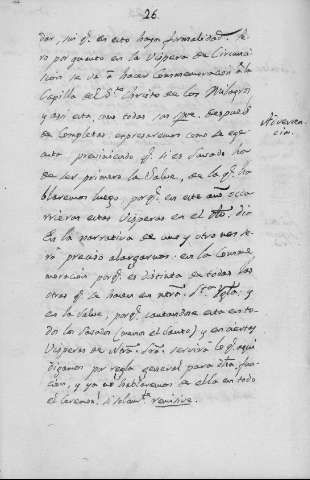 26
dar, sin q.e en esto haya formalidad. Pe-
ro por quanto en la Víspera de Circunci-
sion se vá a hacer Commemoracion á la
Capilla del S.to Christo de los Milagros
y asi esta, como todas las que despues
de Completas empesaremos como la que
auto previniendo q.e si es Sabado ha
de ser primero la Salve, de la q.e ha-
blaremos luego, porq.e en este año ocu-
rrieron estas Vísperas en el dia
En la narrativa de uno y otro nos se-
rá preciso alargarnos: en la Comme-
moracion porq.e es distinta en todas las
otras q.e se hacen en nra. S.ta Ygla. y
en la Salve, porq.e cantandose esta en to-
dos los Sabados (menos el Santo) y en ciertas
Vísperas de Ntra. Sra. servirá lo q.e aqui
digamos por regla general para dha. fun-
cion, y ya no hablaremos de ella en todo
el Ceremo.l si solam.te remisive.
Adverten-
cia.